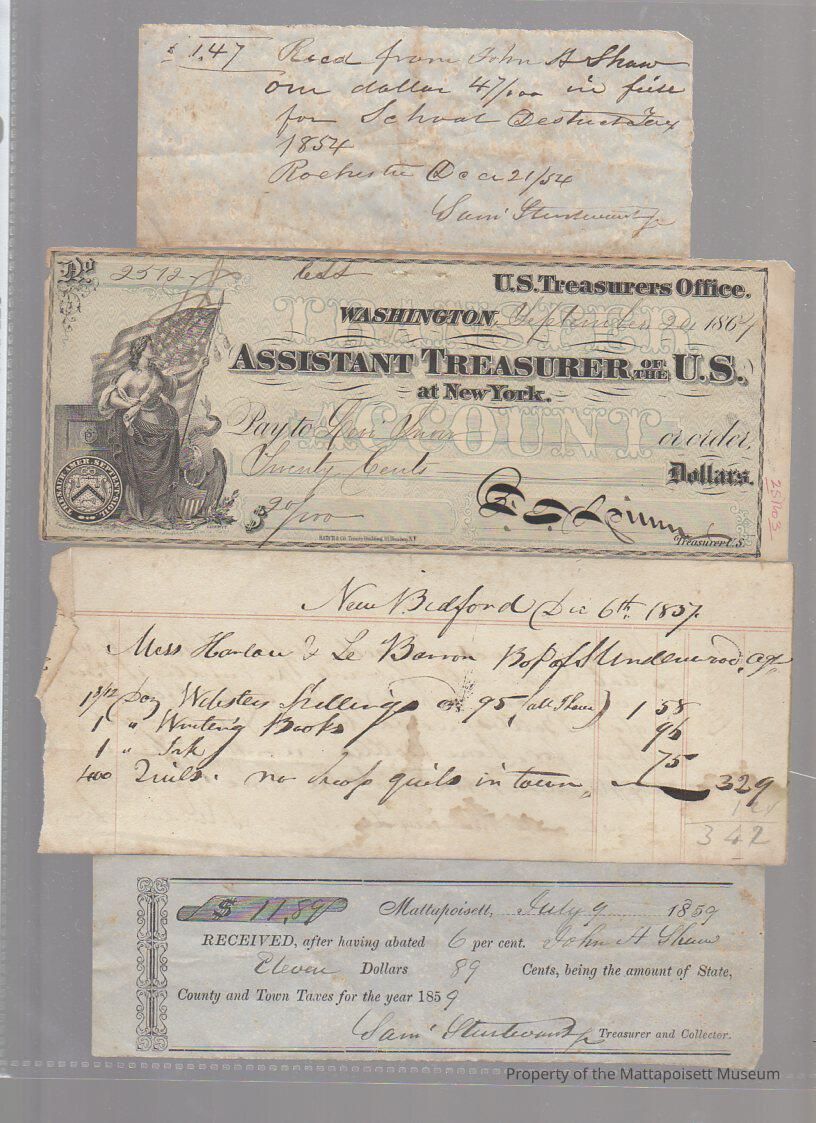 $ 1,47 Recd from John H Shaw
one dollar 47/100 in full
for School Destrict Tax
1854
Rochester Dec 21/54
Sam' Sturtevant Jr
No 2512
U.S. Treasurers Office.
WASHINGTON September 20 1867
TRANSFER
ASSISTANT TREASURER OF THE U.S.
at New York.
ACCOUNT
Pay to or order,
Twenty Cents Dollars.
$ 20/100
Treasurer U.S.
25163
New Bedford Dec 6th. 1857.
Mess Harlow & Le Baron Bot of S Underwood Agt
1 8/12 Doz Websters Spellings @ 95 1 58
1 " Writing Books 96
1 " Ink 75
400 Quils. no cheap quils in town, 329
342
$ 11,89 Mattapoisett, July 9 1859
RECEIVED, after having abated 6 per cent. John H Shaw
Eleven Dollars 89 Cents, being the amount of State,
County and Town Taxes for the year 1859
Sam' Sturtevant Jr Treasurer and Collector.
Property of the Mattapoisett Museum